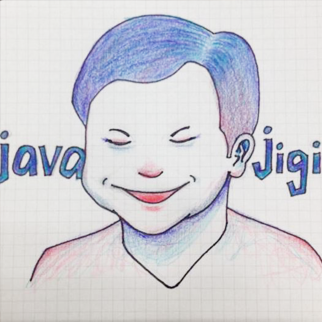 java jigi